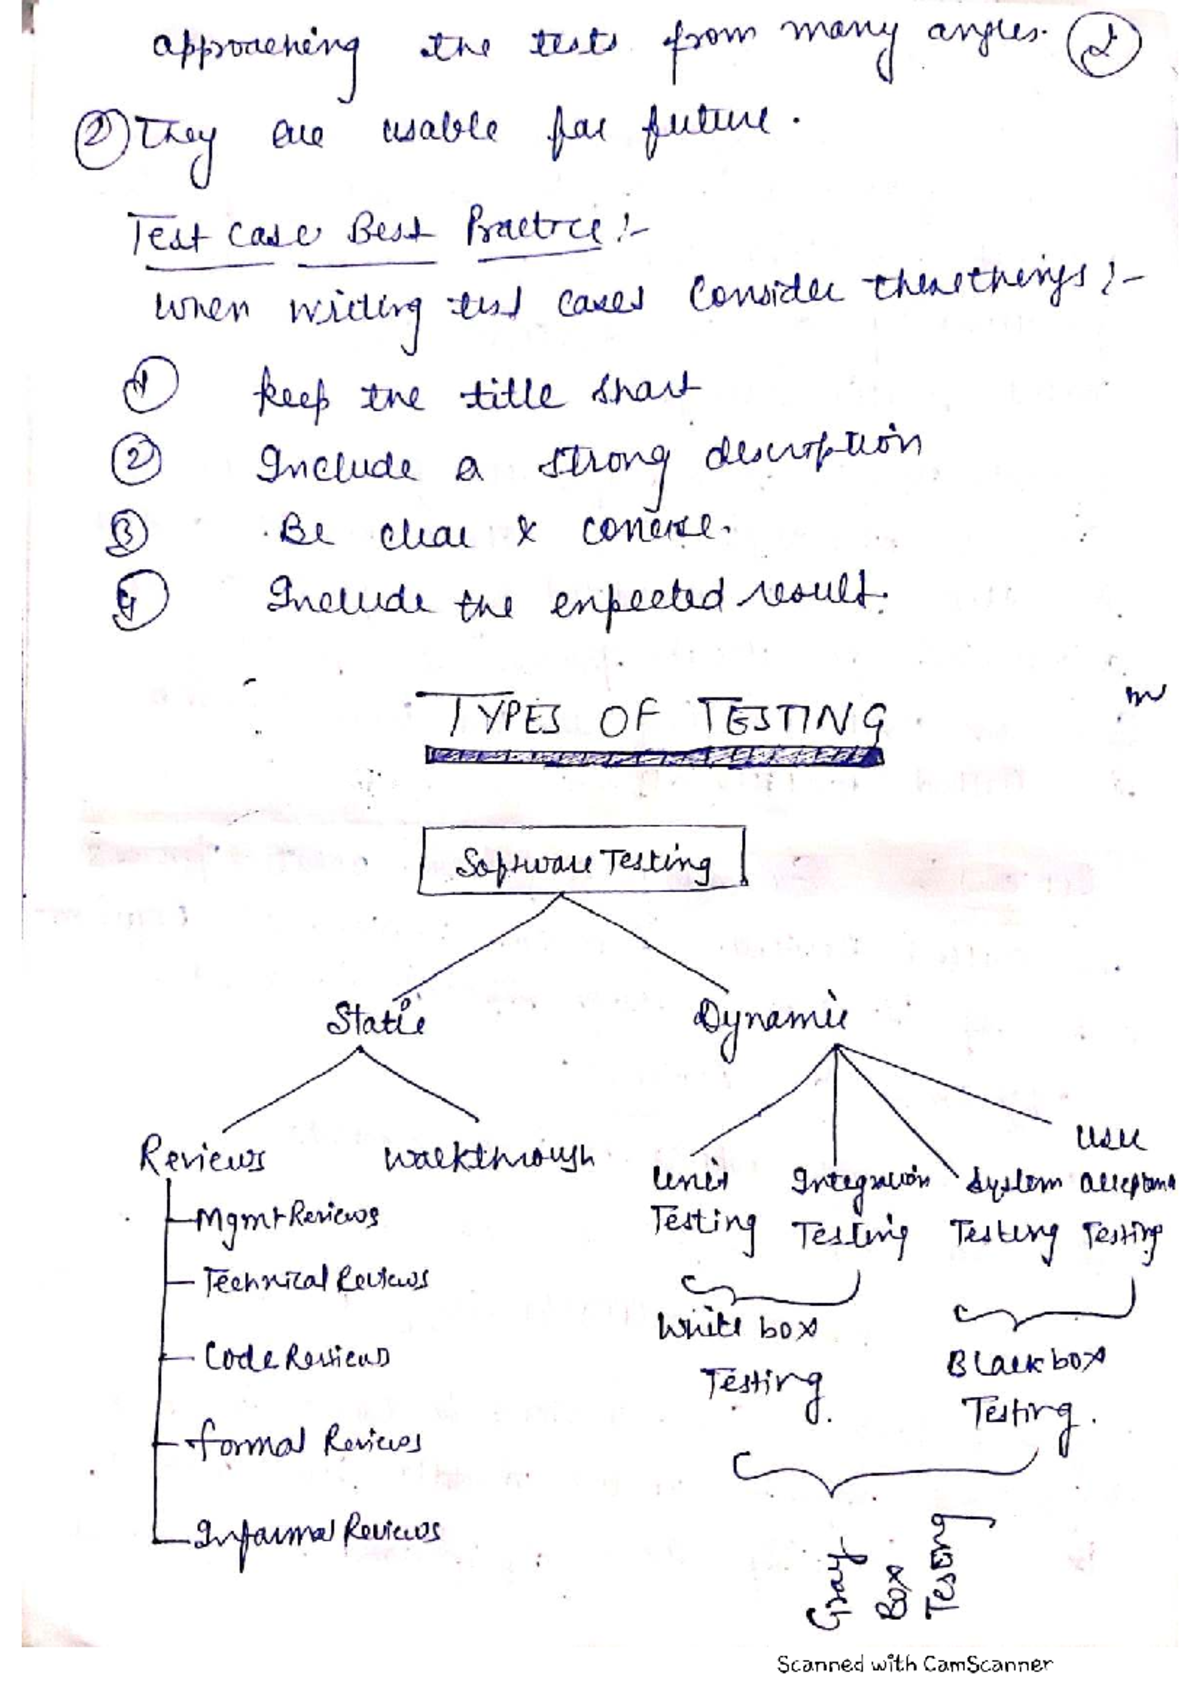 approaching the tests from many angles. 2
② They are usable for future.
Test Case Best Practice :-
When writing test cases consider these things :-
① keep the title short
② Include a strong description
③ Be clear & concise.
④ Include the expected result.
TYPES OF TESTING
Software Testing
Static Dynamic
Reviews Walkthrough
Mgmt Reviews
Technical Reviews
Code Reviews
formal Reviews
Informal Reviews
Unit Testing
Integration Testing
System Testing
User acceptance Testing
White box
Testing.
Black box
Testing.
Gray
Box
Testing
Scanned with CamScanner